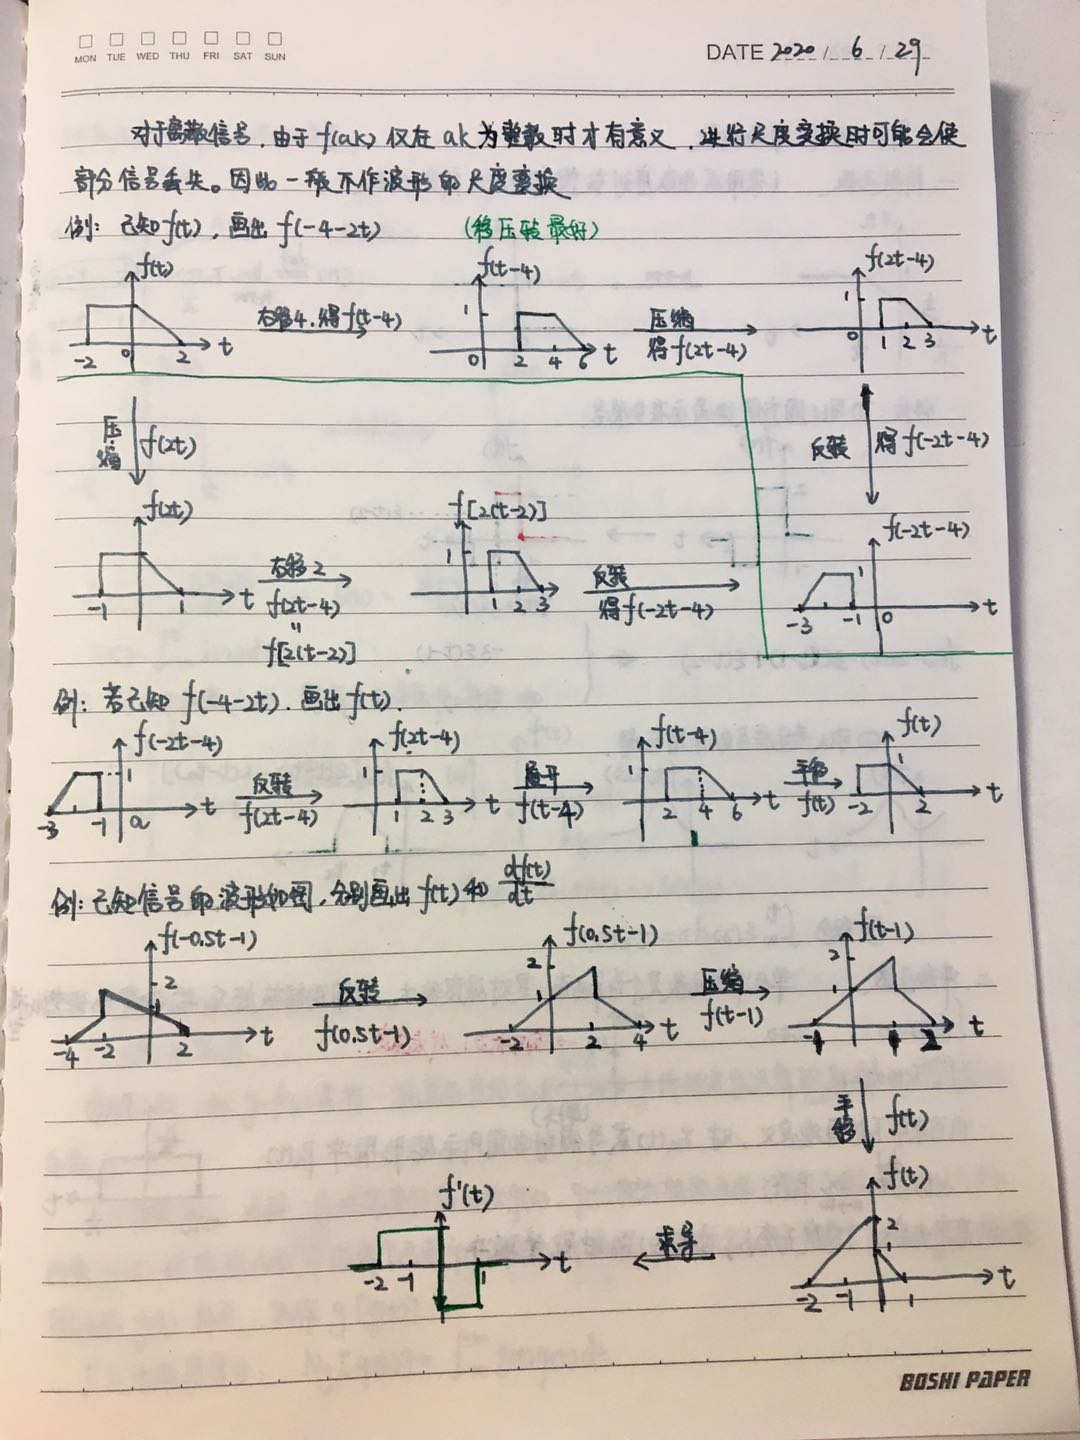 MON TUE WED THU FRI SAT SUN
DATE 2020 / 6 / 29
对于离散信号,由于f(ak)仅在ak为整数时才有意义,进行尺度变换时可能会使
部分信号丢失。因此一般不作波形的尺度变换
例:已知f(t),画出f(-4-2t) (移压转最好)
f(t) f(t-4) f(2t-4)
右移4,得f(t-4) 压缩 得f(2t-4)
1 1
-2 0 2 t 0 2 4 6 t 0 1 2 3 t
压缩 f(2t) 反转 得f(-2t-4)
f(2t) f[2(t-2)] f(-2t-4)
右移2 1 反转 1
-1 1 t f(2t-4) 1 2 3 得f(-2t-4) -3 -1 0 t
=
f[2(t-2)]
例:若已知f(-4-2t),画出f(t).
f(-2t-4) f(2t-4) f(t-4) f(t)
1 反转 1 展开 1 平移 1
-3 -1 0 t f(2t-4) 1 2 3 t f(t-4) 2 4 6 t f(t) -2 2 t
例:已知信号的波形如图,分别画出f(t)和 df(t)/dt
f(-0.5t-1) f(0.5t-1) f(t-1)
2 1 反转 2 1 压缩 2 1
-4 -2 2 t f(0.5t-1) -2 2 4 t f(t-1) -1 1 2 t
平移 f(t)
f'(t) f(t)
求导 2 1
-2 -1 1 t -2 -1 1 t
BOSHI PAPER